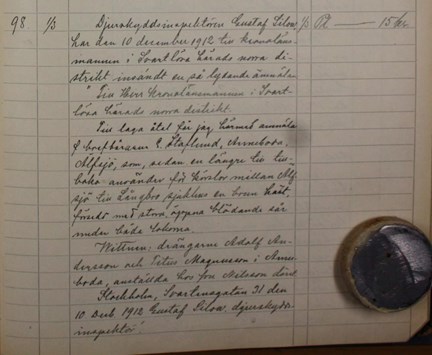 98 1/3 Djurskyddsinspektören Gustaf Silow 1/3 Pd — 15 kr
har den 10 december 1912 till kronoläns-
mannen i Svartlösa härads norra di-
strikt insändt en så lydande anmälan
"Till Herr kronolänsmannen i Svart-
lösa härads norra distrikt.
Till laga åtal får jag härmed anmäla
brefbäraren Staflund,
Älfsjö, som, sedan en längre tid till-
baka använder för körslor mellan Älf
sjö till Långbro sjukhus en brun häst
försedd med stora öppna blödande sår
under båda bogarna.
Wittnen: drängarne Adolf An-
dersson och Titus Magnusson i
boda, anställda hos fru Nilsson
Stockholm, Svartensgatan 31 den
10 Dec 1912 Gustaf Silow, djurskydds-
inspektör"